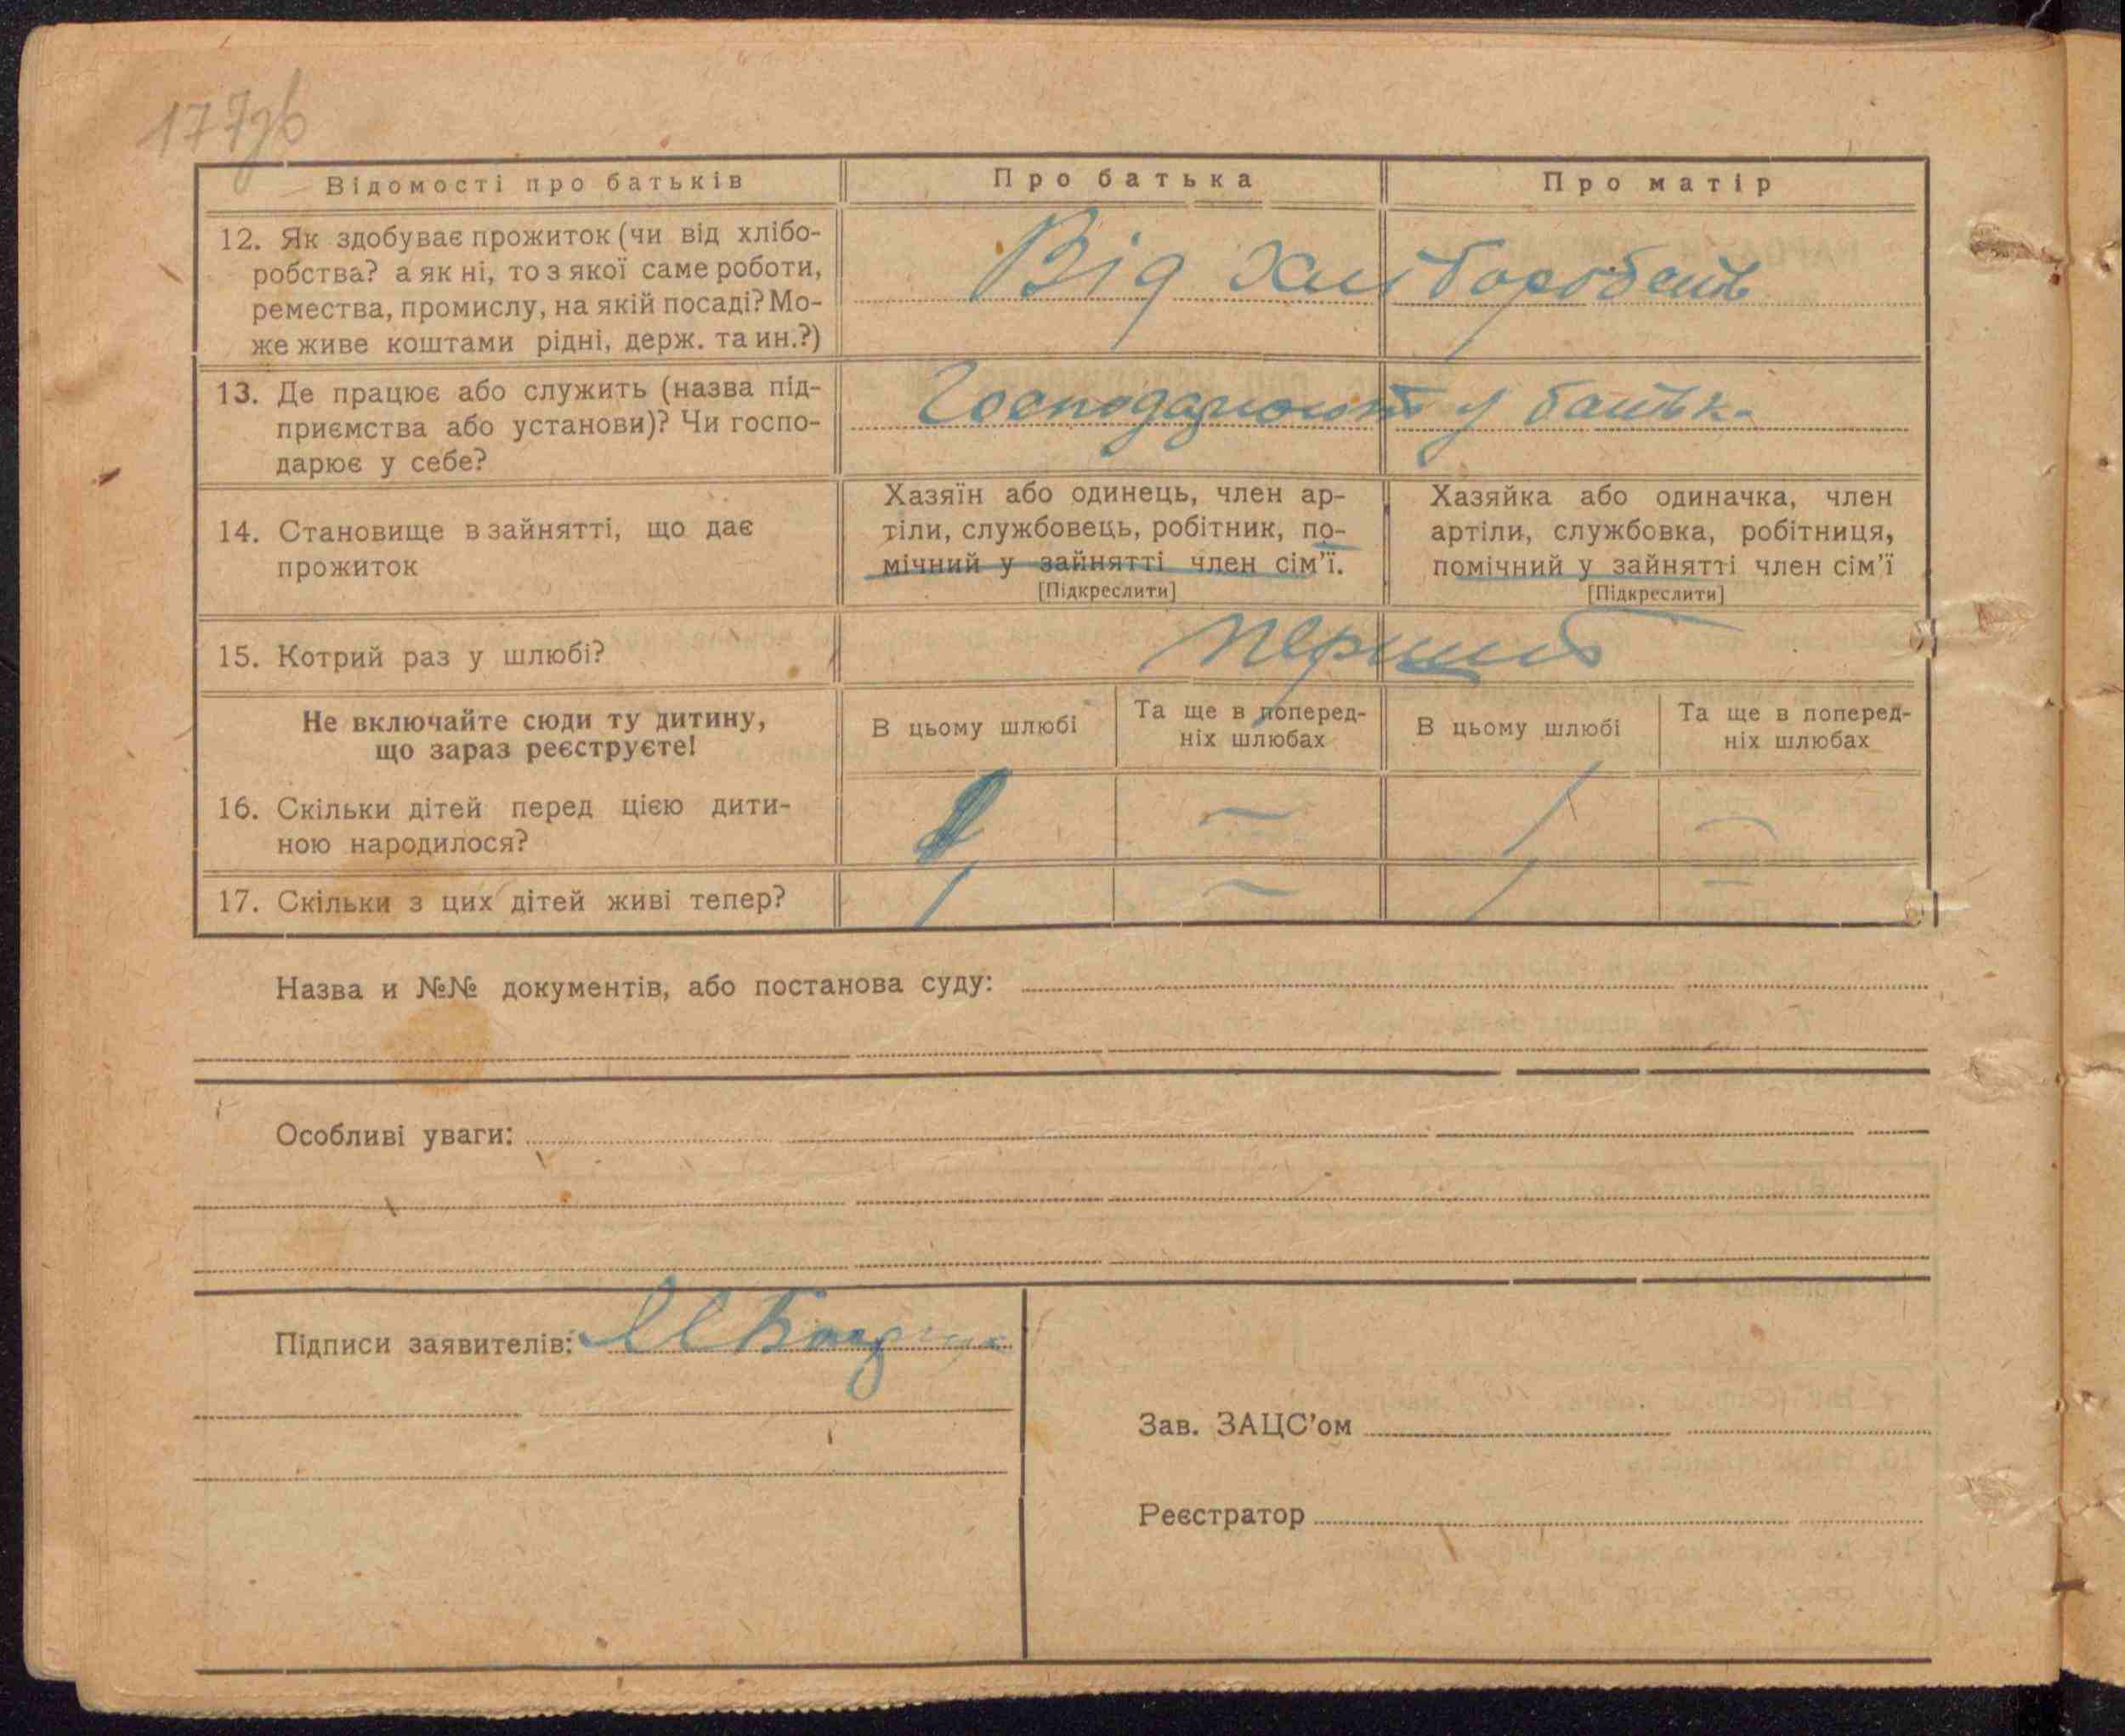 177зв
Відомості про батьків
Про батька
Про матір
12. Як здобуває прожиток (чи від хлібо-
робства? а як ні, то з якої саме роботи,
ремества, промислу, на якій посаді? Мо-
же живе коштами рідні, держ. та ин.?)
Від хліборобств
13. Де працює або служить (назва під-
приємства або установи)? Чи госпо-
дарює у себе?
Господарюють у батьк.
14. Становище в зайнятті, що дає
прожиток
Хазяїн або одинець, член ар-
тіли, службовець, робітник, по-
мічний у зайнятті член сім’ї.
[Підкреслити]
Хазяйка або одиначка, член
артіли, службовка, робітниця,
помічний у зайнятті член сім’ї
[Підкреслити]
15. Котрий раз у шлюбі?
перший
Не включайте сюди ту дитину,
що зараз реєструєте!
В цьому шлюбі
Та ще в поперед-
ніх шлюбах
В цьому шлюбі
Та ще в поперед-
ніх шлюбах
16. Скільки дітей перед цією дити-
ною народилося?
— 1 —
17. Скільки з цих дітей живі тепер?
1 — 1 —
Назва и №№ документів, або постанова суду:
Особливі уваги:
Підписи заявителів:
Зав. ЗАЦС’ом
Реєстратор